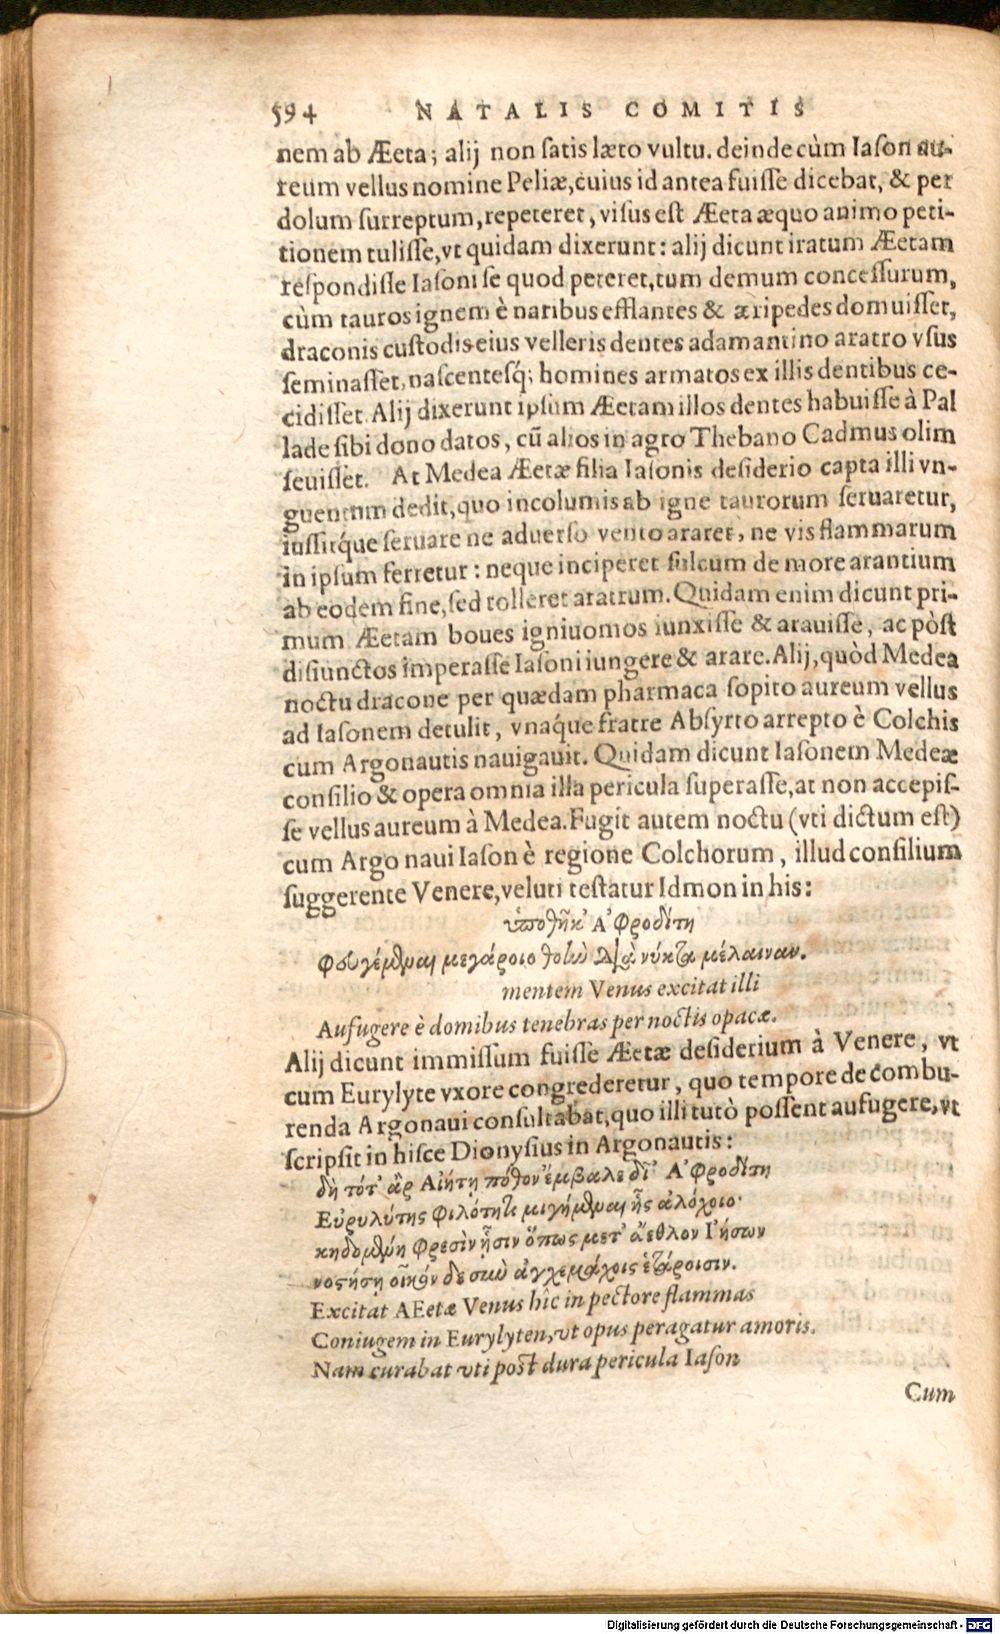 594 NATALIS COMITIS
nem ab Æeta; alij non satis læto vultu. deinde cùm Iason au-
reum vellus nomine Peliæ, cuius id antea fuisse dicebat, & per
dolum surreptum, repeteret, visus est Æeta æquo animo peti-
tionem tulisse, vt quidam dixerunt: alij dicunt iratum Æetam
respondisse Iasoni se quod peteret, tum demum concessurum,
cùm tauros ignem è naribus efflantes & æripedes domuisset,
draconis custodis eius velleris dentes adamantino aratro vsus
seminasset, nascentesq; homines armatos ex illis dentibus ce-
cidisset. Alij dixerunt ipsum Æetam illos dentes habuisse à Pal
lade sibi dono datos, cũ alios in agro Thebano Cadmus olim
seuisset. At Medea Æetæ filia Iasonis desiderio capta illi vn-
guentum dedit, quo incolumis ab igne taurorum seruaretur,
iussitq́ue seruare ne aduerso vento araret, ne vis flammarum
in ipsum ferretur: neque inciperet sulcum de more arantium
ab eodem fine, sed tolleret aratrum. Quidam enim dicunt pri-
mum Æetam boues igniuomos iunxisse & arauisse, ac pòst
disiunctos imperasse Iasoni iungere & arare. Alij, quòd Medea
noctu dracone per quædam pharmaca sopito aureum vellus
ad Iasonem detulit, vnaq́ue fratre Absyrto arrepto è Colchis
cum Argonautis nauigauit. Quidam dicunt Iasonem Medeæ
consilio & opera omnia illa pericula superasse, at non accepis-
se vellus aureum à Medea. Fugit autem noctu (vti dictum est)
cum Argo naui Iason è regione Colchorum, illud consilium
suggerente Venere, veluti testatur Idmon in his:
ὑποθῆκ' Ἀφροδίτη
φευγέμεναι μεγάροιο θοὴν διὰ νύκτα μέλαιναν.
mentem Venus excitat illi
Aufugere è domibus tenebras per noctis opacæ.
Alij dicunt immissum fuisse Æetæ desiderium à Venere, vt
cum Eurylyte vxore congrederetur, quo tempore de combu-
renda Argo naui consultabat, quo illi tutò possent aufugere, vt
scripsit in hisce Dionysius in Argonautis:
δὴ τότ' ἂρ Αἰήτῃ πόθον ἔμβαλε δῖ' Ἀφροδίτη
Εὐρυλύτης φιλότητι μιγήμεναι ἧς ἀλόχοιο·
κηδομένη φρεσὶν ᾗσιν ὅπως μετ' ἄεθλον Ἰήσων
νοστήσῃ οἶκόνδε σὺν ἀγχεμάχοις ἑτάροισιν.
Excitat AEetæ Venus hîc in pectore flammas
Coniugem in Eurylyten, vt opus peragatur amoris.
Nam curabat vti post dura pericula Iason
Cum
Digitalisierung gefördert durch die Deutsche Forschungsgemeinschaft - DFG